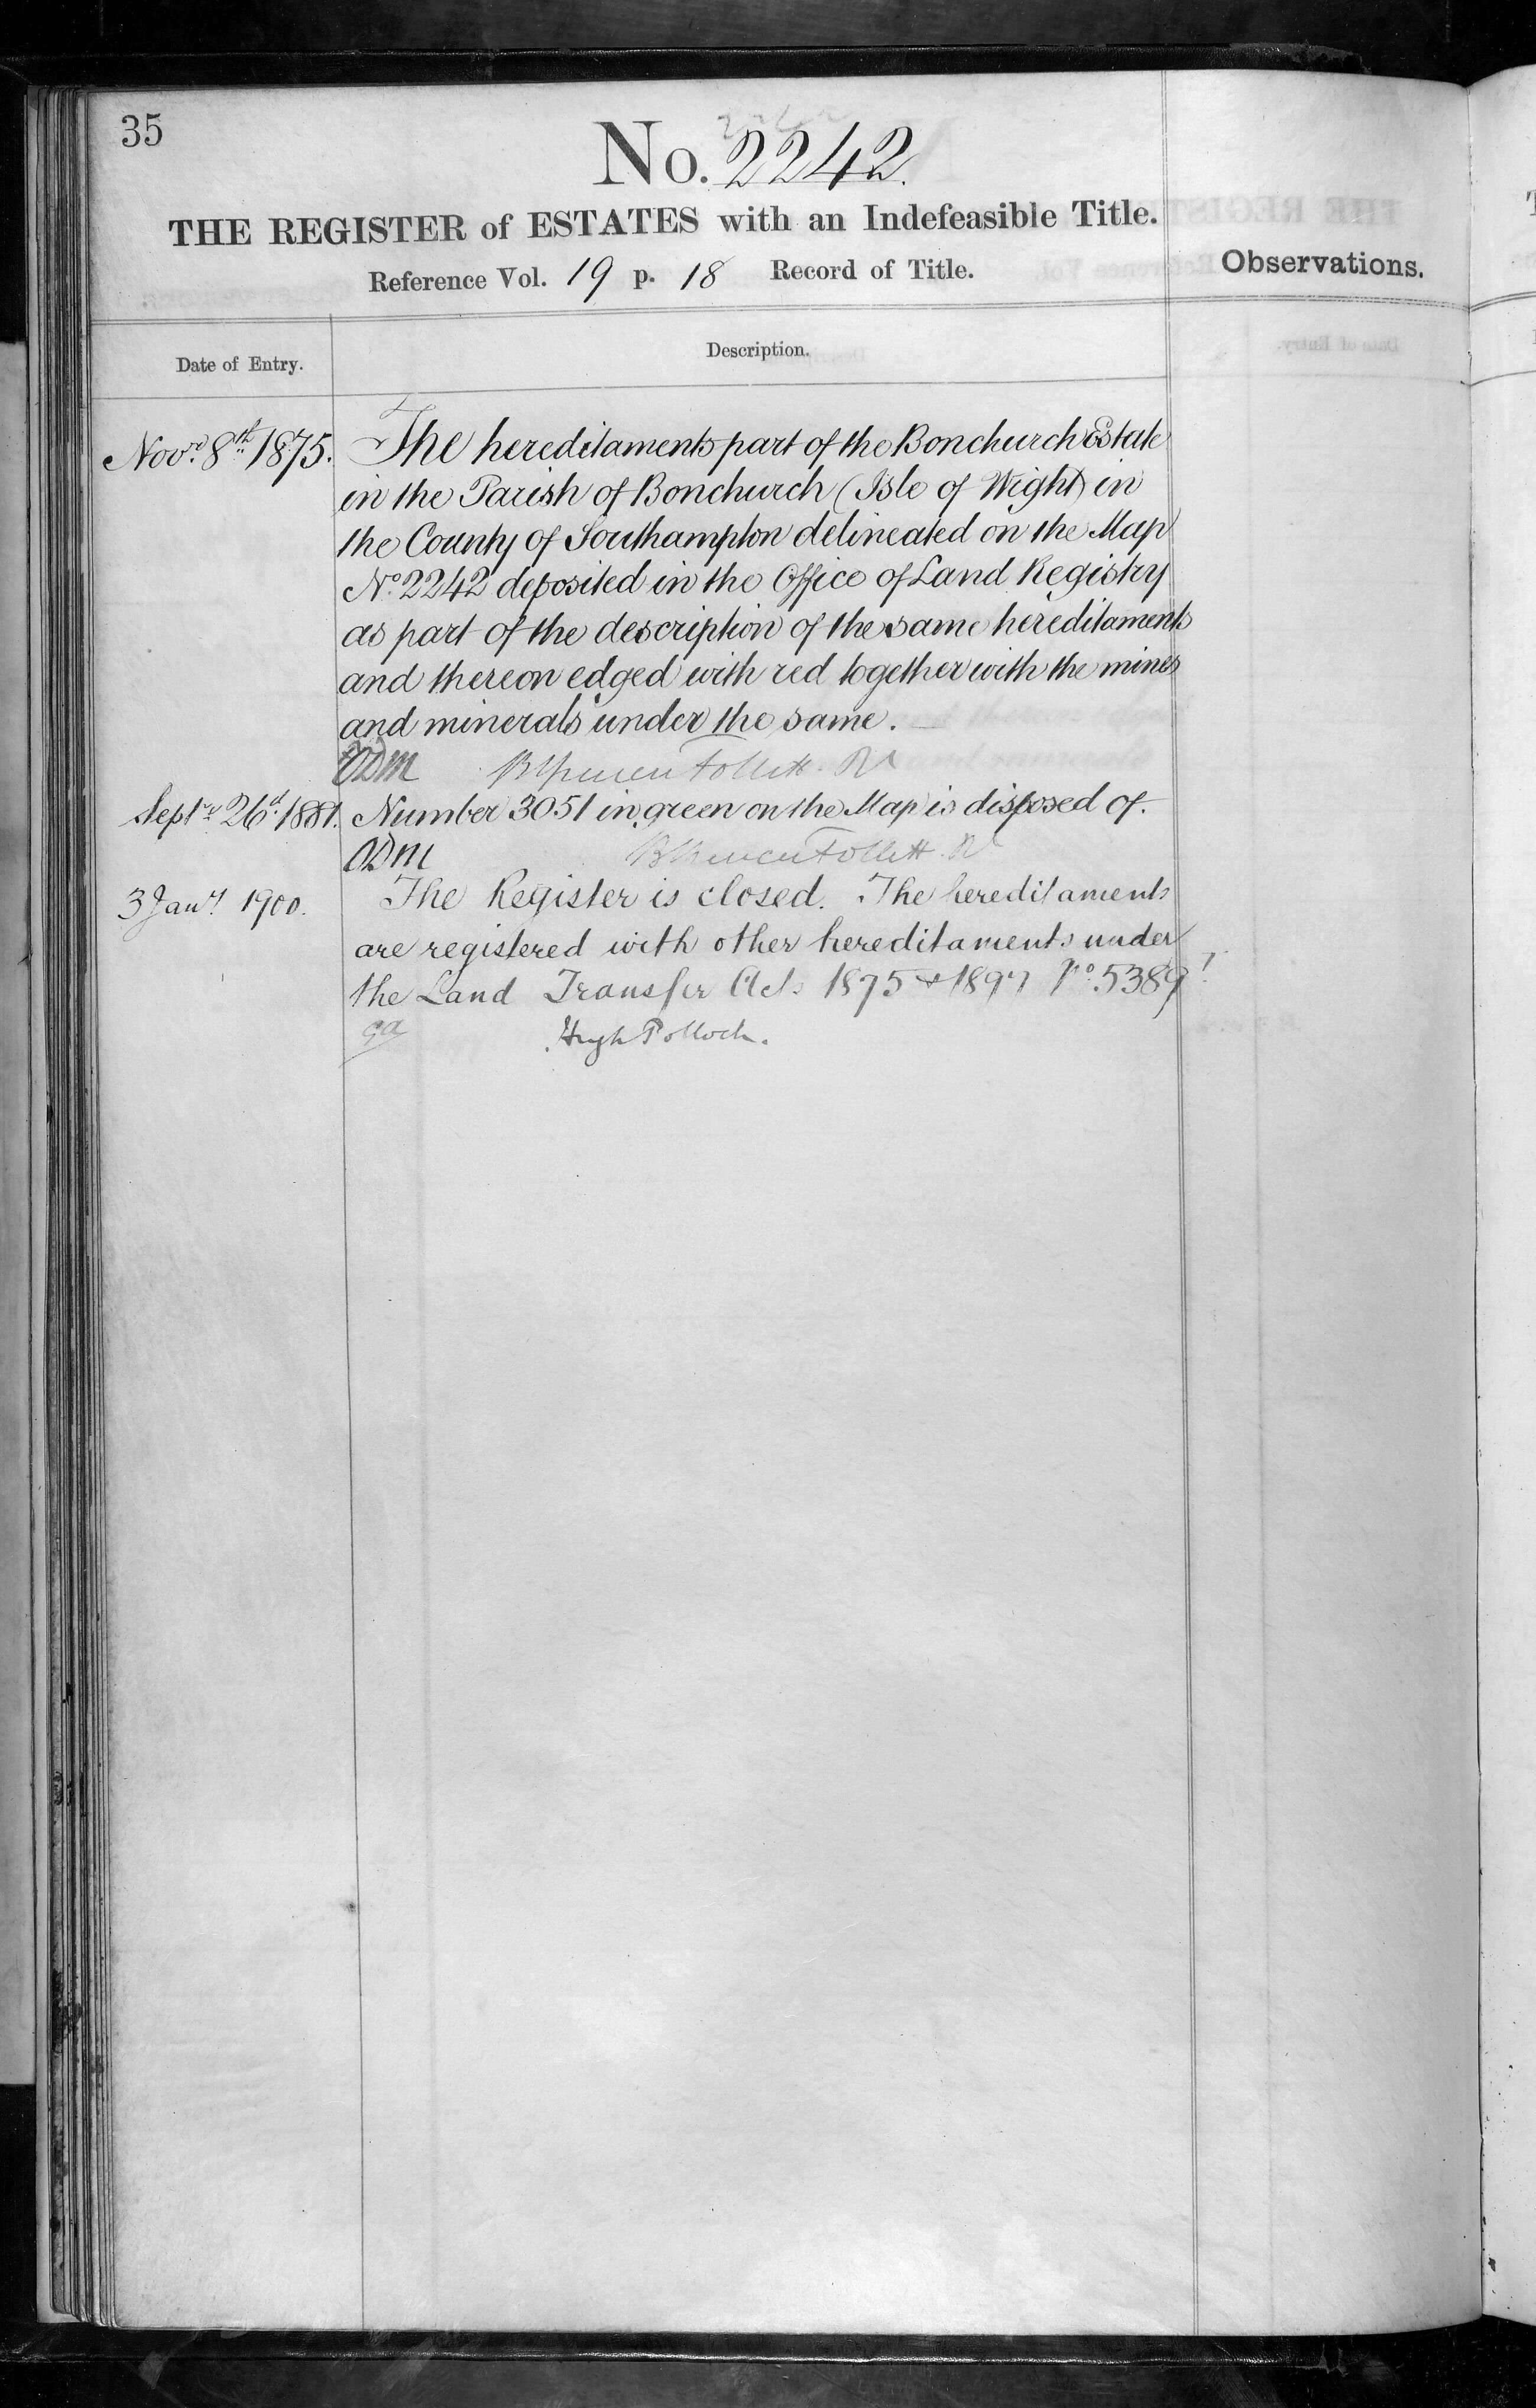 35
No. 2242.
THE REGISTER of ESTATES with an Indefeasible Title.
Reference Vol. 19 p. 18 Record of Title.
Observations.
Date of Entry.
Description.
Novr. 8th 1875. The hereditaments part of the Bonchurch Estate
in the Parish of Bonchurch (Isle of Wight) in
the County of Southampton delineated on the Map
No. 2242 deposited in the Office of Land Registry
as part of the description of the same hereditaments
and thereon edged with red together with the mines
and minerals under the same.
ODM Follett. R
Septr. 26th. 1881. Number 3051 in green on the Map is disposed of.
ODM Follett. R
3 Jany. 1900. The Register is closed. The hereditaments
are registered with other hereditaments under
the Land Transfer Acts 1875 & 1897 No. 5389
Hugh Pollock.